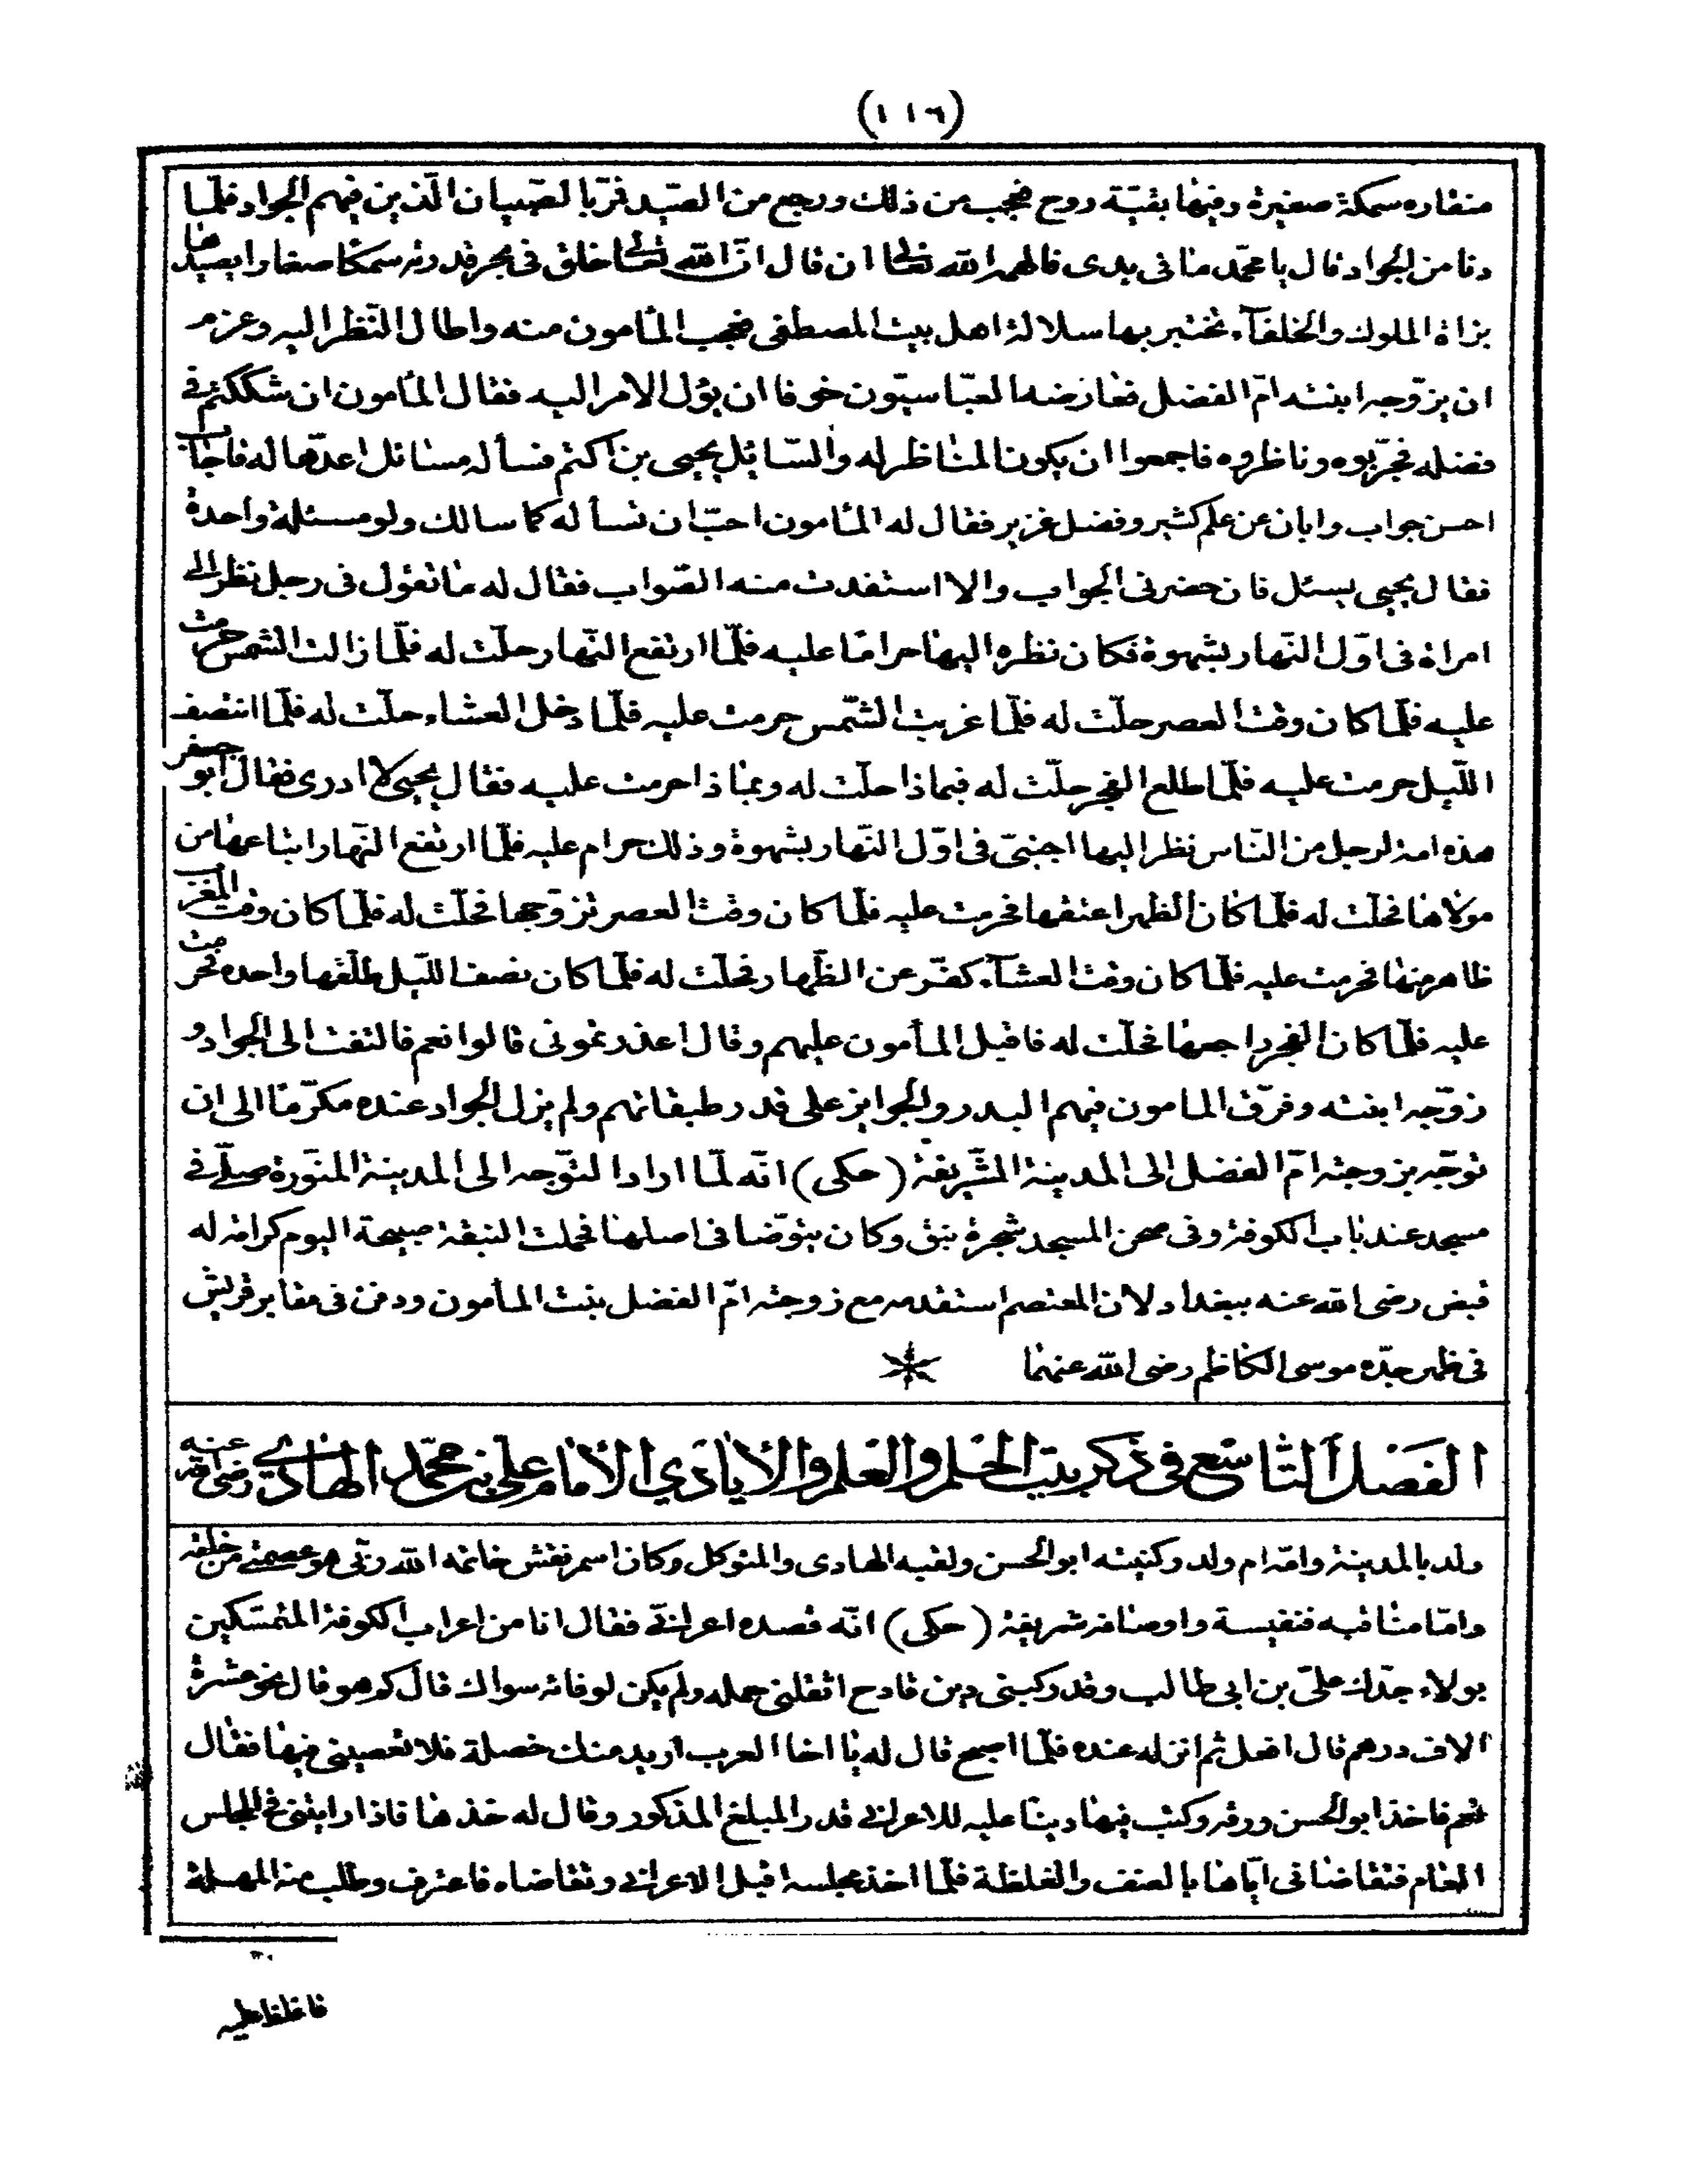 (١١٦)
منقاره سمكة صغيرة وفيها بقيّة روح فعجب من ذلك ورجع من الصّيد فمرّ بالصّبيان الّذين فيهم الجواد فلمّا
دنا من الجواد قال يا محمّد ما فى يدى فالهمه الله تعالى ان قال انّ الله تعالى خلق فى بحر قدرته سمكا صغارا يصيدها
بزاة الملوك والخلفآء تختبر بها سلالة اهل بيت المصطفى فعجب المأمون منه واطال النّظر اليه وعزم
ان يزوّجه ابنته امّ الفضل فعارضه العبّاسيّون خوفا ان يؤل الامر اليه فقال المأمون ان شككتم فى
فضله فجرّبوه وناظروه فاجمعوا ان يكون المناظر له والسّائل يحيى بن اكثم فسأله مسائل اعدّها له فاجاب
احسن جواب وابان عن علم كثير وفضل غزير فقال له المأمون احبّ ان نسأله كما سالك ولو مسئلة واحدة
فقال يحيى يسئل فان حضرنى الجواب والا استفدت منه الصّواب فقال له ما تقول فى رجل نظر الى
امراة فى اوّل النّهار بشهوة فكان نظره اليها حراما عليه فلمّا ارتفع النّهار حلّت له فلمّا زالت الشّمس حرمت
عليه فلمّا كان وقت العصر حلّت له فلمّا غربت الشّمس حرمت عليه فلمّا دخل العشاء حلّت له فلمّا انتصف
اللّيل حرمت عليه فلمّا طلع الفجر حلّت له فبماذا حلّت له وبماذا حرمت عليه فقال يحيى لا ادرى فقال ابو جعفر
هذه امة لرجل من النّاس نظر اليها اجنبىّ فى اوّل النّهار بشهوة وذلك حرام عليه فلمّا ارتفع النّهار ابتاعها من
مولاها فحلّت له فلمّا كان الظهر اعتقها فحرمت عليه فلمّا كان وقت العصر تزوّجها فحلّت له فلمّا كان وقت المغرب
ظاهر منها فحرمت عليه فلمّا كان وقت العشآء كفّر عن الظّهار فحلّت له فلمّا كان نصف اللّيل طلّقها واحده فحرمت
عليه فلمّا كان الفجر راجعها فحلّت له فاقبل المأمون عليهم وقال اعذرتمونى قالوا نعم فالتفت الى الجواد و
زوّجه ابنته وفرّق المامون فيهم البدر والجوايز على قدر طبقاتهم ولم يزل الجواد عنده مكرّما الى ان
توجّه بزوجته امّ الفضل الى المدينة الشّريفة (حكى) انّه لمّا اراد التّوجه الى المدينة المنوّرة صلّى فى
مسجد عند باب الكوفة وفى صحن المسجد شجرة نبق وكان يتوضّا فى اصلها فحملت النبقة صبيحة اليوم كرامة له
قبض رضى الله عنه ببغداد لان المعتصم استقدمه مع زوجته امّ الفضل بنت المأمون ودفن فى مقابر قريش
فى ظهر جدّه موسى الكاظم رضى الله عنهما
الفصل التّاسع فى ذكر بيت الحلم والعلم والايادي الامام علي بن محمّد الهادي رضى الله عنه
ولد بالمدينة وامّه ام ولد وكنيته ابو الحسن ولقبه الهادى والمتوكل وكان اسم نقش خاتمه الله ربّى هو عصمتى من خلقه
وامّا مناقبه فنفيسة واوصافه شريفة (حكى) انّه قصده اعرابىّ فقال انا من اعراب الكوفة المتمسّكين
بولاء جدّك علىّ بن ابى طالب وقد ركبنى دين فادح اثقلنى حمله ولم يكن لوفائه سواك قال كم هو قال نحو عشرة
الاف درهم قال افعل ثم انزله عنده فلمّا اصبح قال له يا اخا العرب اريد منك خصلة فلا تعصينى فيها فقال
نعم فاخذ ابو الحسن ورقه وكتب فيها دينا عليه للاعرابى قدر المبلغ المذكور وقال له خذ ها فاذا رايتنى فى المجلس
العام فتقاضا فى ايّاها بالعنف والغلظة فلمّا اخذ مجلسه اقبل الاعرابى وتقاضاه فاعترف وطلب منه المهملة
فاغلظ عليه